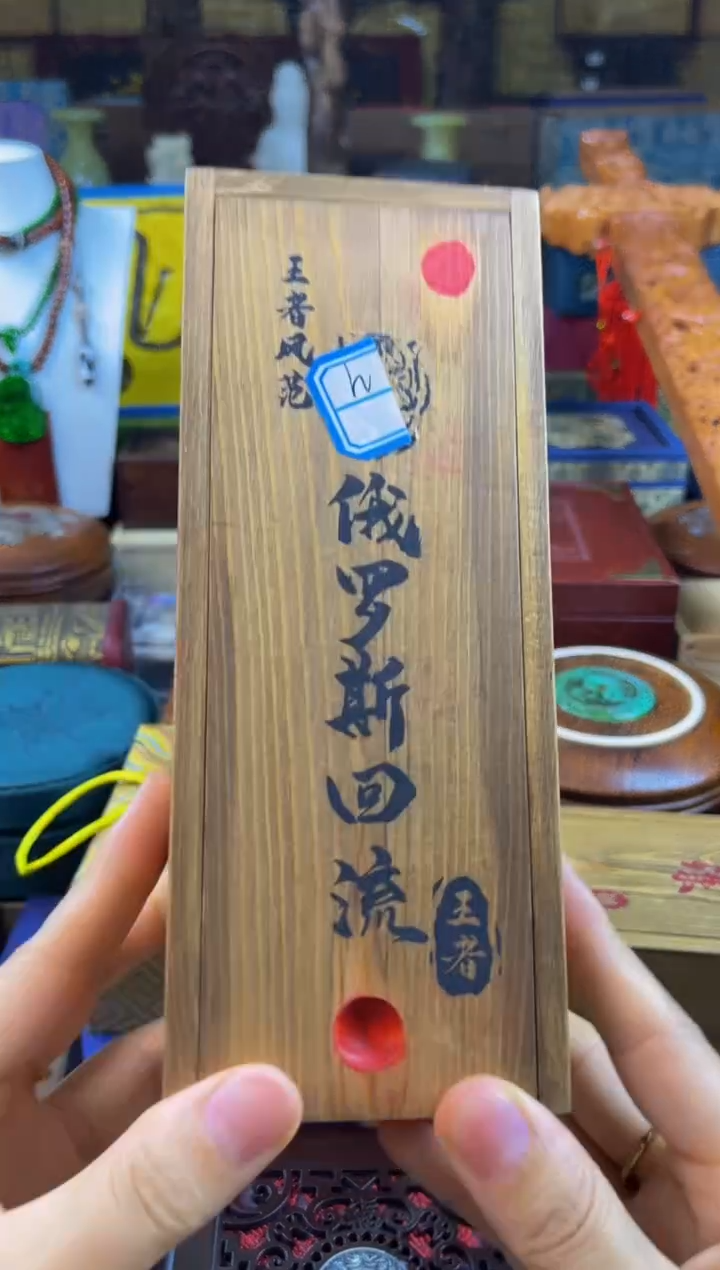 王者风范
h
俄罗斯回流
王者